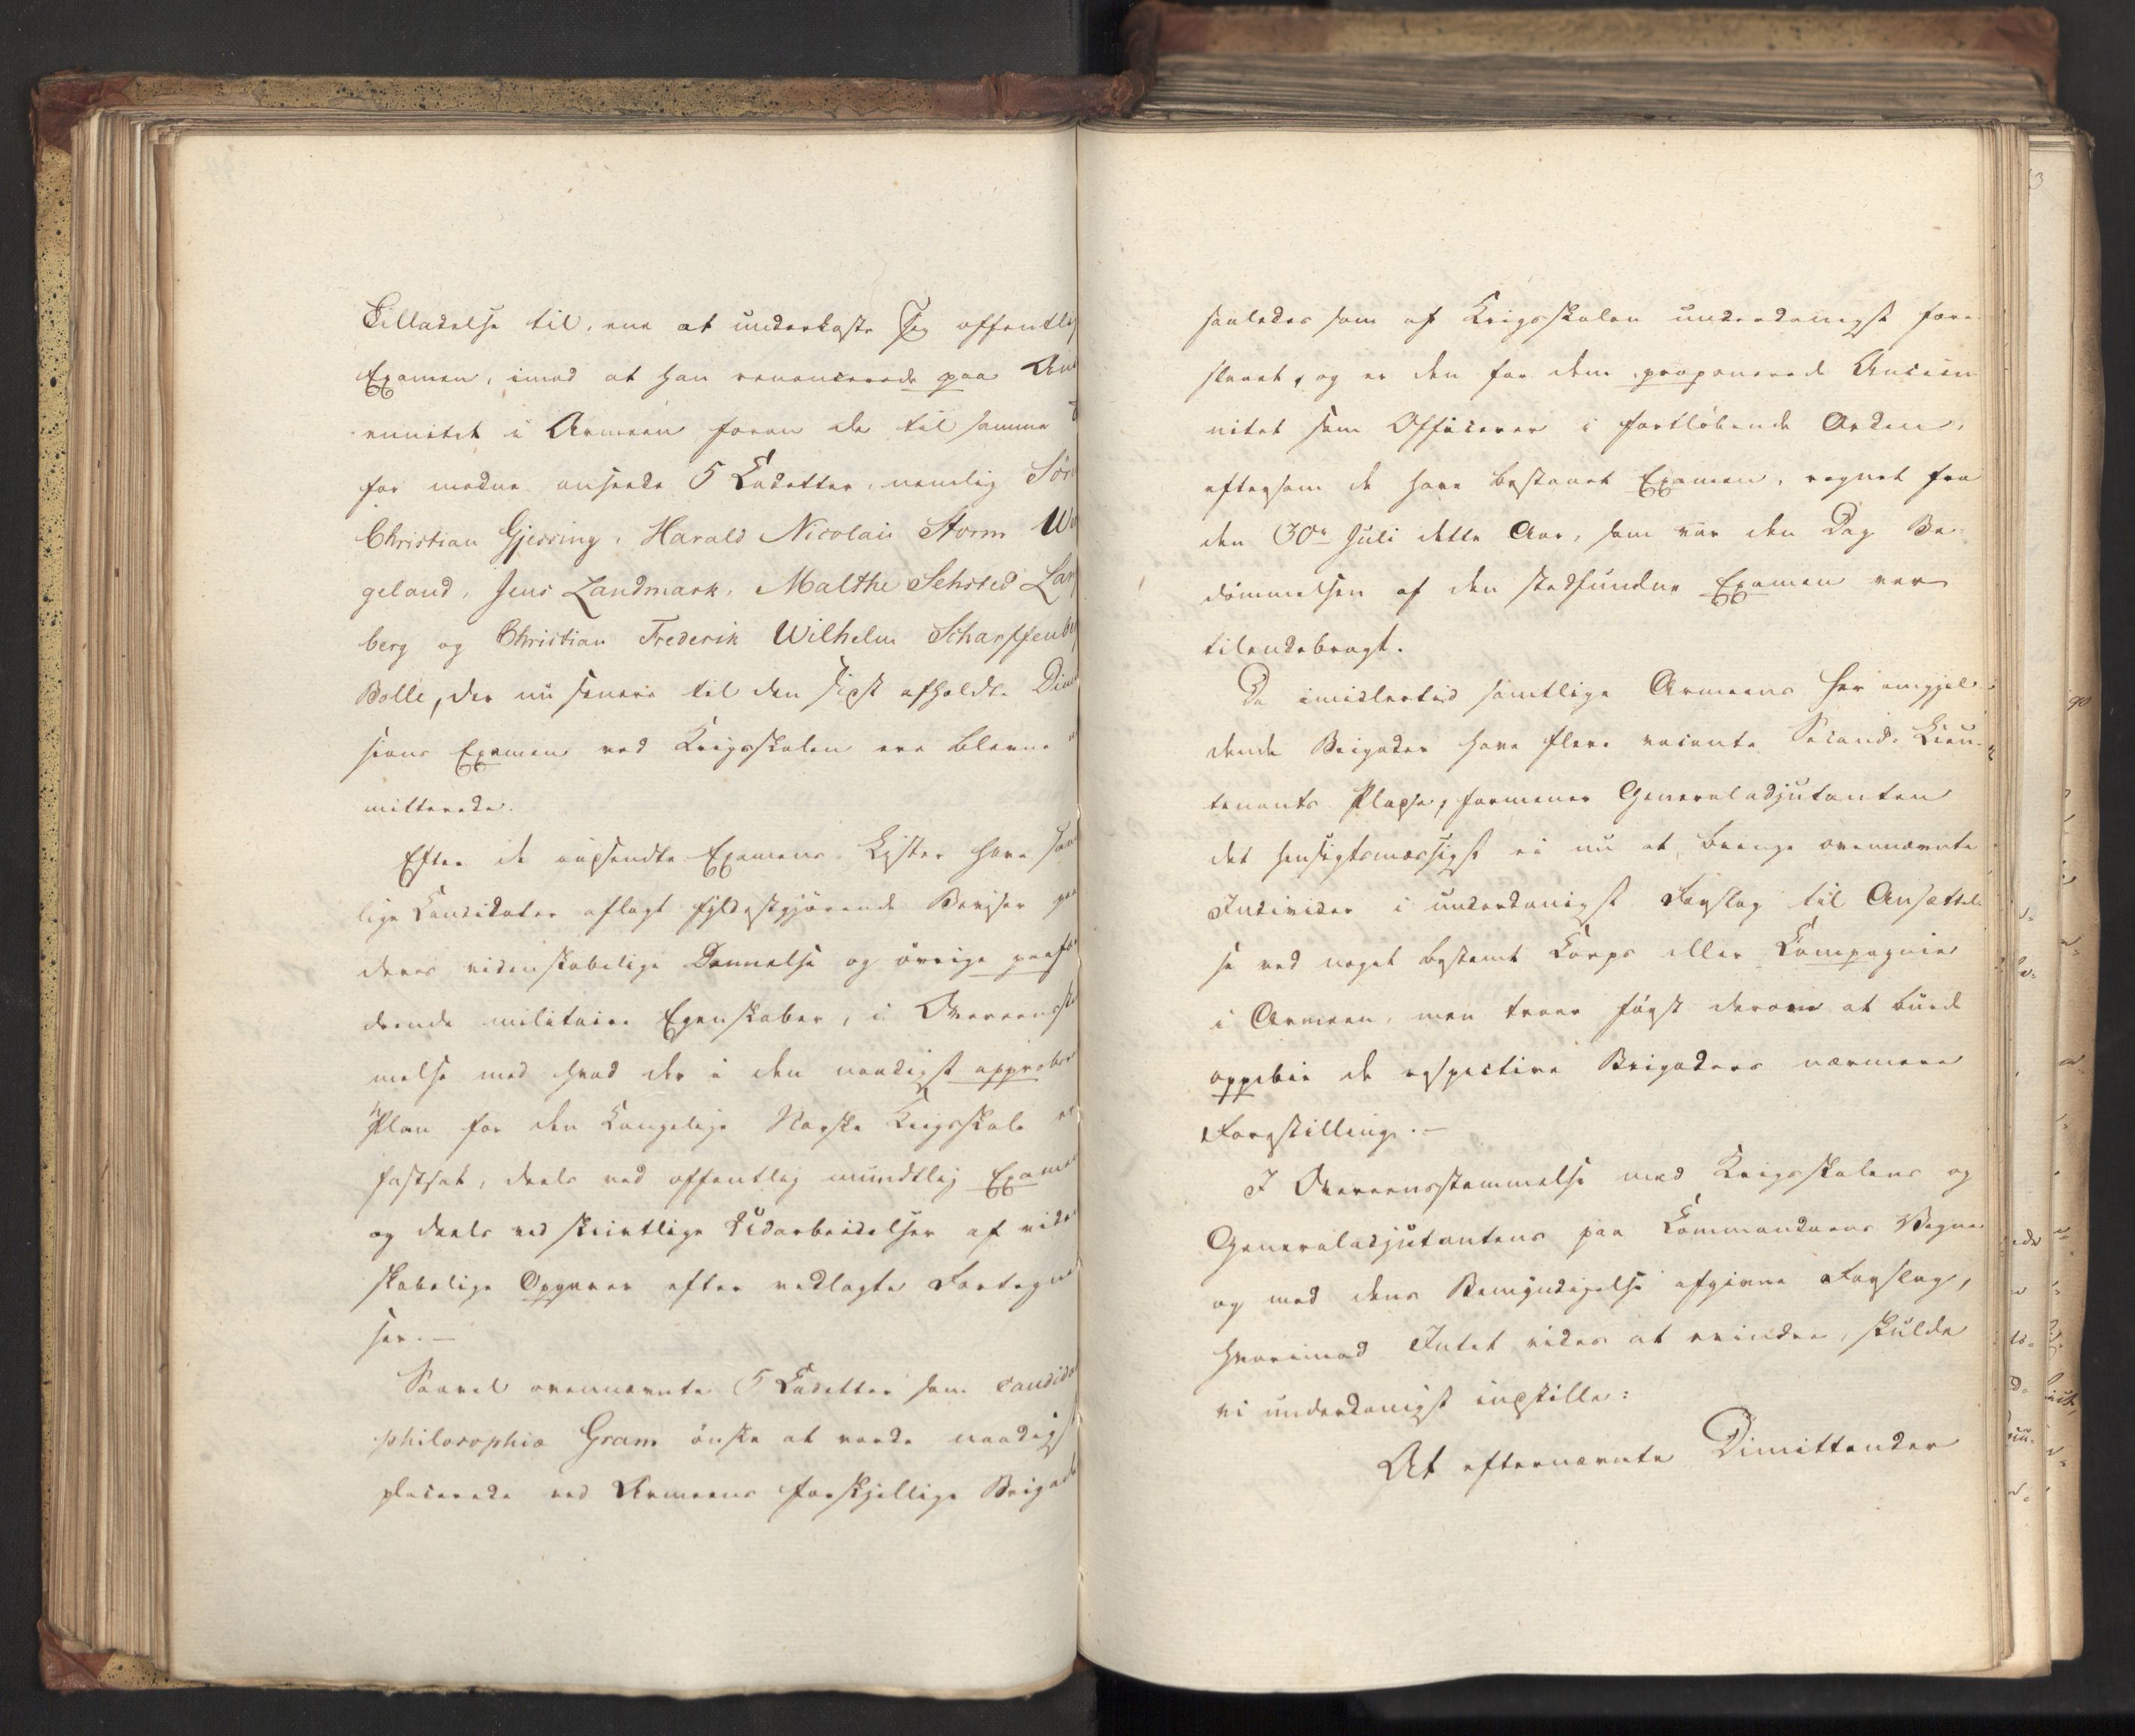 Tilladelse til, ene at underkaste sig offentlig
Examen, imod at han renoncerede paa Anci
ennitet i Armeen foran de til samme
for modne anseede 5 Kadetter, nemlig Sör
Christian Gjessing, Harald Nicolai Storm We
geland, Jens Landmark, Malthe Sehsted Lam
berg og Christian Frederik Wilhelm Scharffenberg
Bolle, der nu senere til den sidst afholdte Dimis
sions Examen ved Krigsskolen ere blevne
mitterede.
Efter de indsendte Examens-Lister have samt
lige Candidater aflagt fyldestgjørende Beviser paa
deres videnskabelige Dannelse og övrige paafor
drende militaire Egenskaber, i Overeensstem
melse med hvad der i den naadigst approbere
Plan for den Kongelige Norske Krigsskole er
fastsat, deels ved offentlig mundtlig Examen
og deels ved skriftlige Udarbeidelser af viden
skabelige Opgaver efter vedlagte Fortegnel
ser.—
Saavel ovennævnte 5 Kadetter som candida
philosophiæ Gram önske at vorde naadigst
placerede ved Armeens forskjellige Brigade
saaledes som af Krigsskolen underdanigst fore
slaaet, og er den for dem proponerede Ancien
nitet som Officerer i fortløbende Orden,
eftersom de have bestaaet Examen, regnet fra
den 30te Juli dette Aar, som var den Dag Be
dömmelsen af den stedfundne Examen var
tilendebragt.
Da imidlertid samtlige Armeens her omgjel
dende Brigader have flere vacante Second-Lieu-
tenants Pladse, formener Generaladjutanten
det hensigtsmæssigst ei nu at bringe ovennævnte
Individer i underdanigst Forslag til Ansættel
se ved noget bestemt Corps eller Compagnie
i Armeen, men troer først derom at burde
oppebie de respective Brigaders nærmere
Forestilling.—
I Overeensstemmelse med Krigsskolens og
Generaladjutantens paa Commandoens Vegne
og med dens Bemyndigelse afgivne Forslag,
hvorimod Intet vides at erindre, skulde
vi underdanigst indstille:
At efternævnte Dimittender